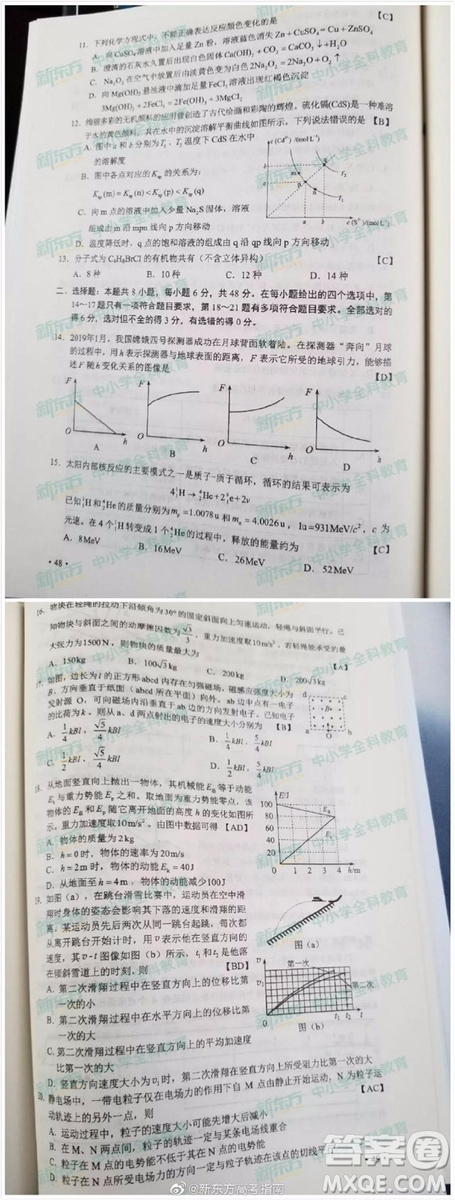 【C】
11. 下列化学方程式中，不能正确表达反应颜色变化的是
A. 向CuSO₄溶液中加入足量Zn粉，溶液蓝色消失 Zn+CuSO₄=Cu+ZnSO₄
B. 澄清的石灰水久置后出现白色固体 Ca(OH)₂+CO₂=CaCO₃↓+H₂O
C. Na₂O₂在空气中放置后由淡黄色变为白色 2Na₂O₂=2Na₂O+O₂↑
D. 向Mg(OH)₂悬浊液中滴加足量FeCl₃溶液出现红褐色沉淀
3Mg(OH)₂+2FeCl₃=2Fe(OH)₃+3MgCl₂
12. 绚丽多彩的无机颜料的应用曾创造了古代绘画和彩陶的辉煌。硫化镉(CdS)是一种难溶
于水的黄色颜料，其在水中的沉淀溶解平衡曲线如图所示。下列说法错误的是 【B】
A. 图中a和b分别为T₁、T₂温度下CdS在水中
的溶解度
B. 图中各点对应的Ksp的关系为：
Ksp(m)=Ksp(n)<Ksp(p)<Ksp(q)
C. 向m点的溶液中加入少量Na₂S固体，溶液
组成由m沿mpn线向p方向移动
D. 温度降低时，q点的饱和溶液的组成由q沿qp线向p方向移动
13. 分子式为C₄H₈BrCl的有机物共有（不含立体异构）
【C】
A. 8种 B. 10种 C. 12种 D. 14种
二、选择题：本题共8小题，每小题6分，共48分。在每小题给出的四个选项中，第
14～17题只有一项符合题目要求，第18～21题有多项符合题目要求。全部选对的
得6分，选对但不全的得3分，有选错的得0分。
14. 2019年1月，我国嫦娥四号探测器成功在月球背面软着陆。在探测器“奔向”月球
的过程中，用h表示探测器与地球表面的距离，F表示它所受的地球引力，能够描
述F随h变化关系的图像是
【D】
F F F F
O h O h O h O h
A B C D
15. 太阳内部核反应的主要模式之一是质子一质子循环，循环的结果可表示为
4¹₁H→⁴₂He+2⁰₁e+2ν
已知¹₁H和⁴₂He的质量分别为mₚ=1.0078u和mₐ=4.0026u，1u=931MeV/c²，c为
光速。在4个¹₁H转变成1个⁴₂He的过程中，释放的能量约为
【C】
A. 8MeV B. 16MeV C. 26MeV D. 52MeV
·48·
16. 物块在轻绳的拉动下沿倾角为30°的固定斜面向上匀速运动，轻绳与斜面平行。已
知物块与斜面之间的动摩擦因数为√3/3，重力加速度取10m/s²。若轻绳能承受的最
大张力为1500N，则物块的质量最大为
【A】
A. 150kg B. 100√3kg C. 200kg D. 200√3kg
17. 如图，边长为l的正方形abcd内存在匀强磁场，磁感应强度大小为
B，方向垂直于纸面（abcd所在平面）向外。ab边中点有一电子
发射源O，可向磁场内沿垂直于ab边的方向发射电子。已知电子
的比荷为k。则从a、d两点射出的电子的速度大小分别为 【B】
A. 1/4kBl，√5/4kBl B. 1/4kBl，5/4kBl
C. 1/2kBl，√5/4kBl D. 1/2kBl，5/4kBl
18. 从地面竖直向上抛出一物体，其机械能E总等于动能
Eₖ与重力势能Eₚ之和。取地面为重力势能零点，该
物体的E总和Eₚ随它离开地面的高度h的变化如图所
示。重力加速度取10m/s²。由图中数据可得 【AD】
A. 物体的质量为2kg
B. h=0时，物体的速率为20m/s
C. h=2m时，物体的动能Eₖ=40J
D. 从地面至h=4m，物体的动能减少100J
E/J
100
80
60
40
20
0 1 2 3 4 h/m
19. 如图（a），在跳台滑雪比赛中，运动员在空中滑
翔时身体的姿态会影响其下落的速度和滑翔的距
离。某运动员先后两次从同一跳台起跳，每次都
从离开跳台开始计时，用v表示他在竖直方向的
速度，其v-t图像如图（b）所示，t₁和t₂是他落
在倾斜雪道上的时刻，则
【BD】
A. 第二次滑翔过程中在竖直方向上的位移比第
一次的小
B. 第二次滑翔过程中在水平方向上的位移比第
一次的大
C. 第二次滑翔过程中在竖直方向上的平均加速度
比第一次的大
D. 竖直方向速度大小为v₁时，第二次滑翔在竖直方向上所受阻力比第一次的大
图（a）
v
v₁
第一次
第二次
O t₁ t₂ t
图（b）
20. 静电场中，一带电粒子仅在电场力的作用下自M点由静止开始运动，N为粒子运
动轨迹上的另外一点，则
【AC】
A. 运动过程中，粒子的速度大小可能先增大后减小
B. 在M、N两点间，粒子的轨迹一定与某条电场线重合
C. 粒子在M点的电势能不低于其在N点的电势能
D. 粒子在N点所受电场力的方向一定与粒子轨迹在该点的切线平行
新东方 中小学全科教育
@新东方高考指南
答案圈
MXQE.COM